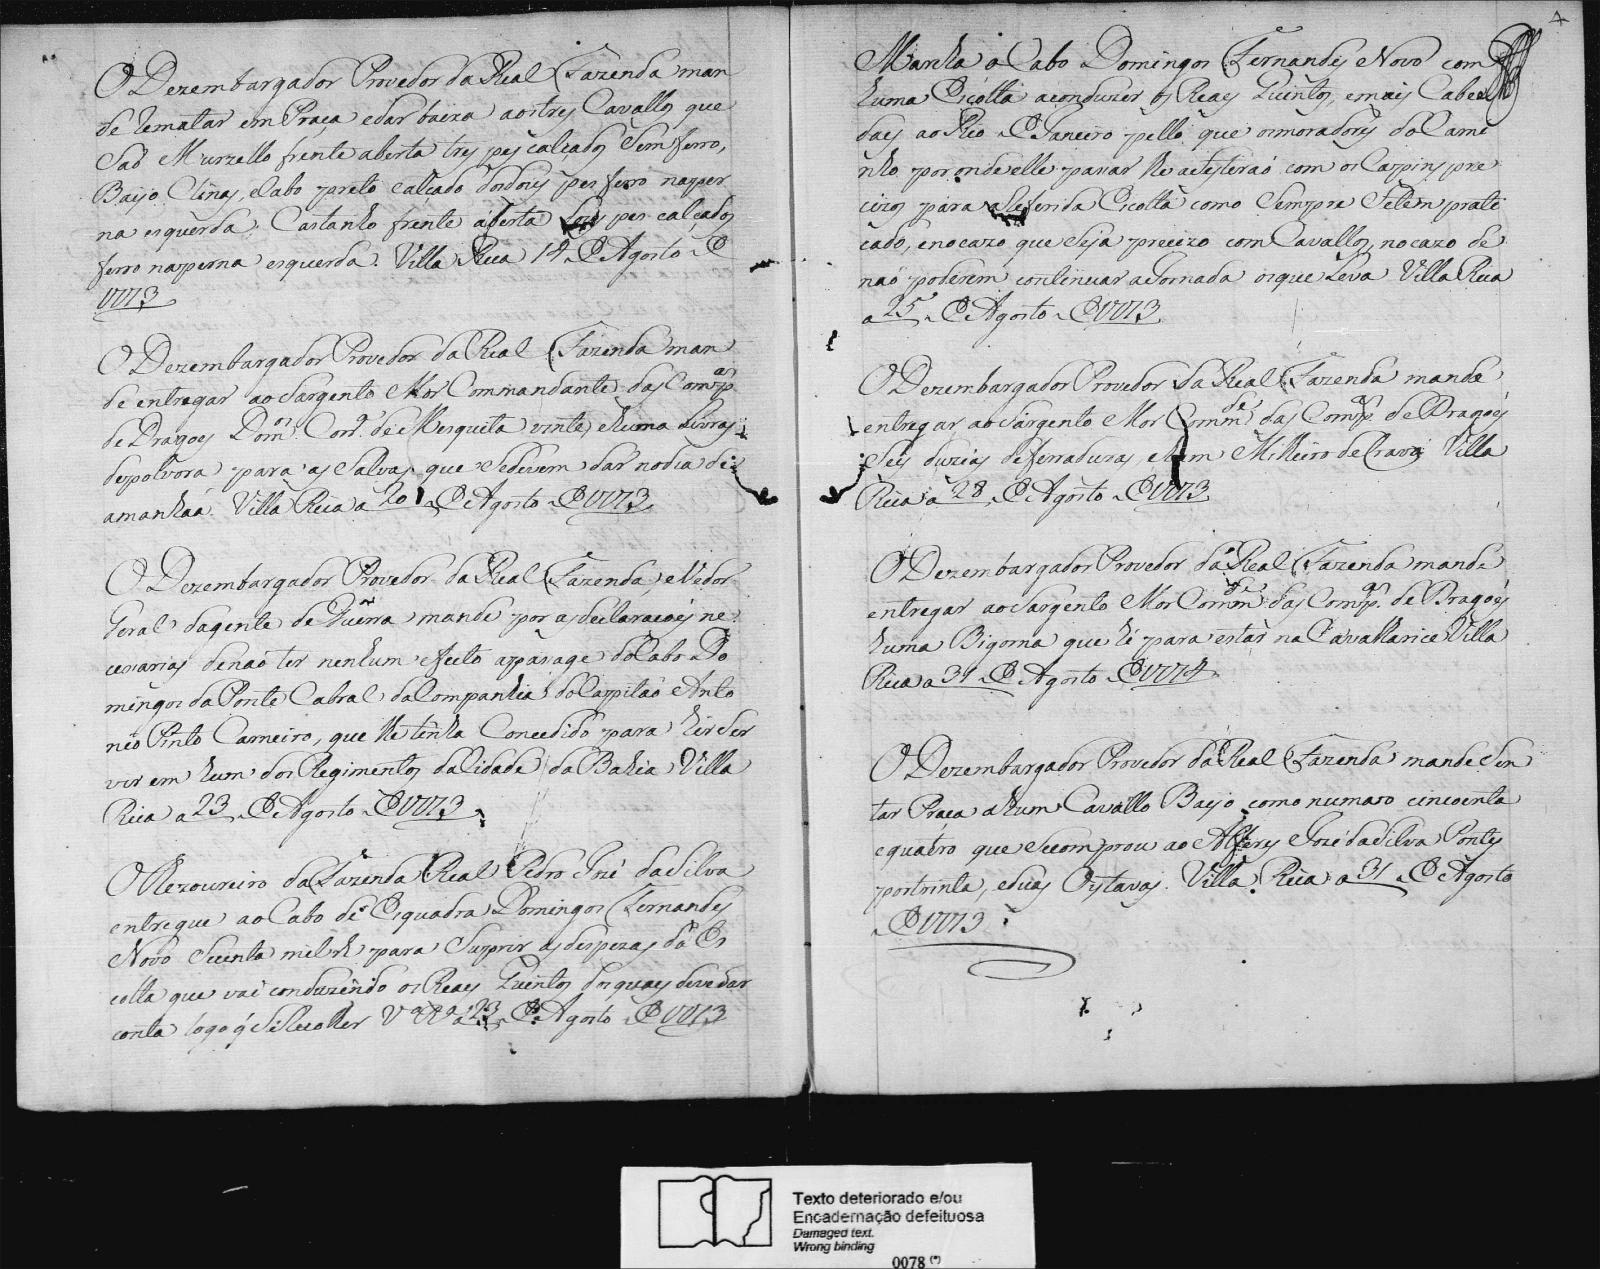 O Dezembargador Provedor da Real Fazenda man
de rematar em Praça, e dar baixa aos tres Cavallos que
Saõ Murzello frente aberta tres pés calçados Sem ferro,
Bayo Clinas, e Cabo preto calçado dos dois pes ferro na per
na esquerda, Castanho frente aberta dois pes calçados
ferro na perna esquerda. Villa Rica 14 de Agosto de
1773
O Dezembargador Provedor da Real Fazenda man
de entregar ao Sargento Mor Commandante das Comp.as
de Dragoes Dom.os Cor.a de Mesquita vinte, e huma Livras
de polvora para as Salvas que Sedevem dar no dia de
amanhaã. Villa Rica a 20 de Agosto de 1773
O Dezembargador Provedor da Real Fazenda, e Vedor
Geral dagente de Guerra mande por as declaraçoẽs ne
cesarias denaõ ter nenhum efeito apasage do Cabo Do
mingos da Ponte Cabral da Companhia do Capitaõ Anto
nio Pinto Carneiro, que lhe tinha Concedido para hir Ser
vir em hum dos Regimentos da Cidade da Bahia Villa
Rica a 23 de Agosto de 1773
O Thezoureiro da Fazenda Real Pedro José da Silva
entregue ao Cabo de Esquadra Domingos Fernandes
Novo Secenta mil r.s para Suprir as despezas da Es
colta que vai conduzindo os Reaes Quintos dos quaes deve dar
conta logo q̃ Se Recolher V.a R.a a 23 de Agosto de 1773
4
Marcha o Cabo Domingos Fernandes Novo com
huma Escolta aconduzir os Reaes Quintos, e mais Cabe
daes ao Rio de Janeiro pello que os moradores do Cami
nho por onde elle pasar lhe asesteraõ com os Capins pre
cizos para a Referida Escolta como Sempre Se tem prati
cado, e no cazo que Seja precizo com Cavallos, no cazo de
naõ poderem continuar a Jornada os que Leva Villa Rica
a 25 de Agosto de 1773
O Dezembargador Provedor da Real Fazenda mande
entregar ao Sargento Mor Comm.de das Comp.as de Dragoẽs
Seis duzias de ferraduras, e hum Milheiro de Cravos Villa
Rica a 28 de Agosto de 1773
O Dezembargador Provedor da Real Fazenda mande
entregar ao Sargento Mor Comm.de das Comp.as de Dragoẽs
huma Bigorna que hé para estar na Cavalharice Villa
Rica a 31 de Agosto de 1774
O Dezembargador Provedor da Real Fazenda mande Sen
tar Praça a hum Cavallo Bayo como numaro cincoenta
e quatro que Secomprou ao Alferes José da Silva Pontes
por trinta, e duas Oytavas. Villa Rica a 31 de Agosto
de 1773
Texto deteriorado e/ou
Encadernação defeituosa
Damaged text.
Wrong binding
0078 (*)